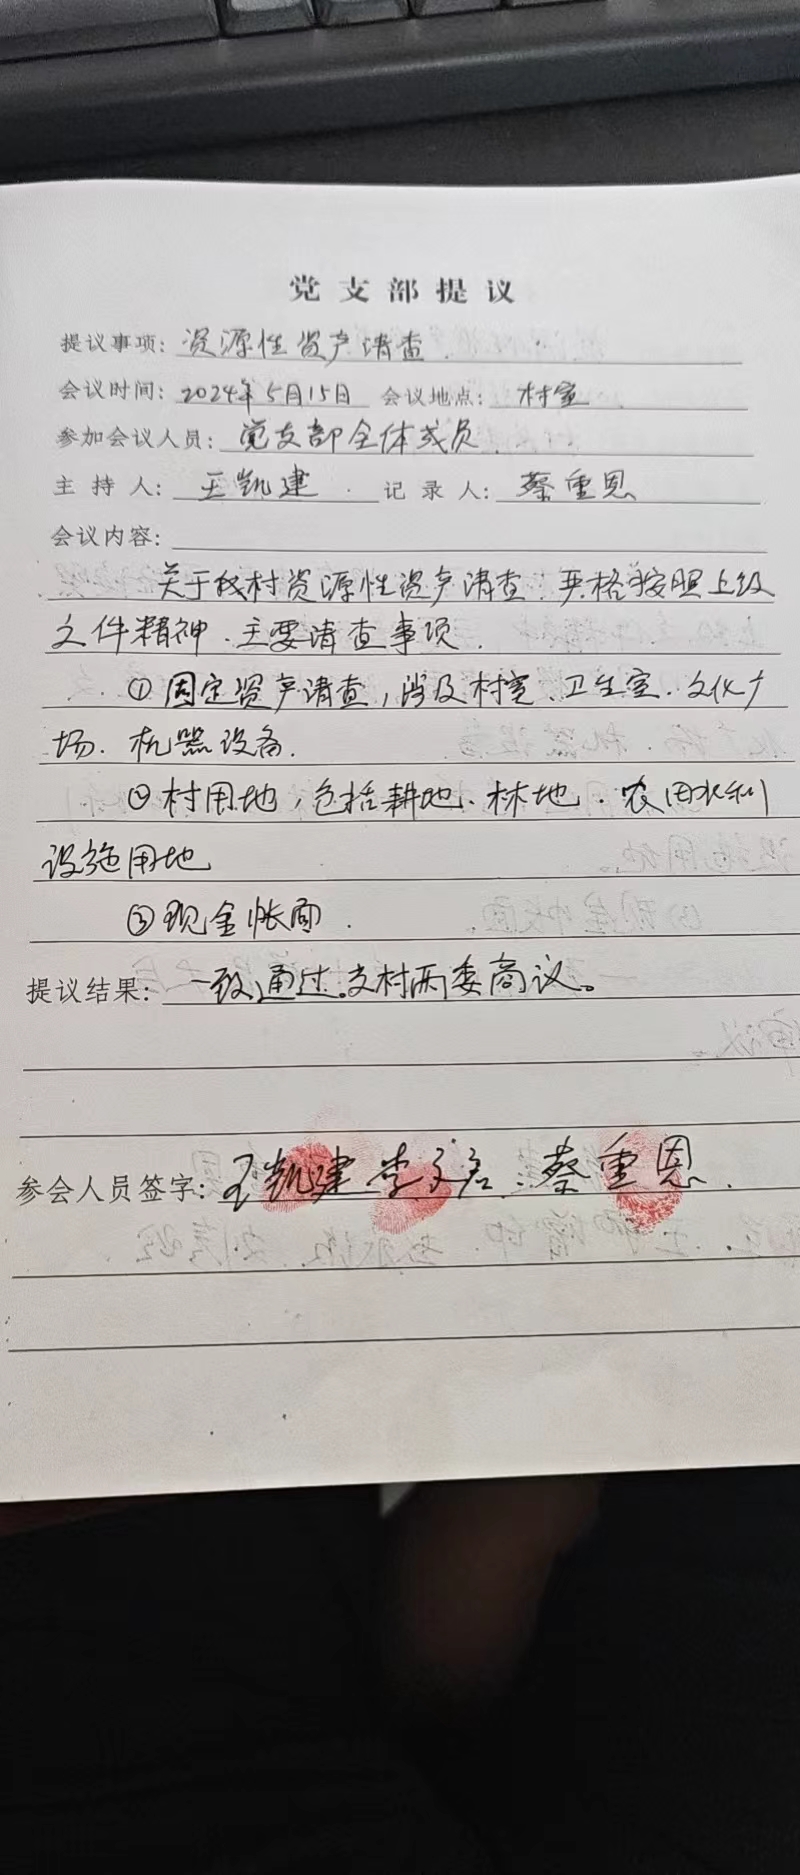 党支部提议
提议事项：资源性资产清查
会议时间：2024年5月15日 会议地点：村室
参加会议人员：党支部全体成员
主持人：王凯建 记录人：蔡重恩
会议内容：
关于我村资源性资产清查，严格按照上级
文件精神、主要清查事项.
①固定资产清查，涉及村室、卫生室、文化广
场、机器设备.
②村用地，包括耕地、林地、农田水利
设施用地
③现金帐面.
提议结果：一致通过。支村两委商议。
参会人员签字：王凯建 李文启 蔡重恩.